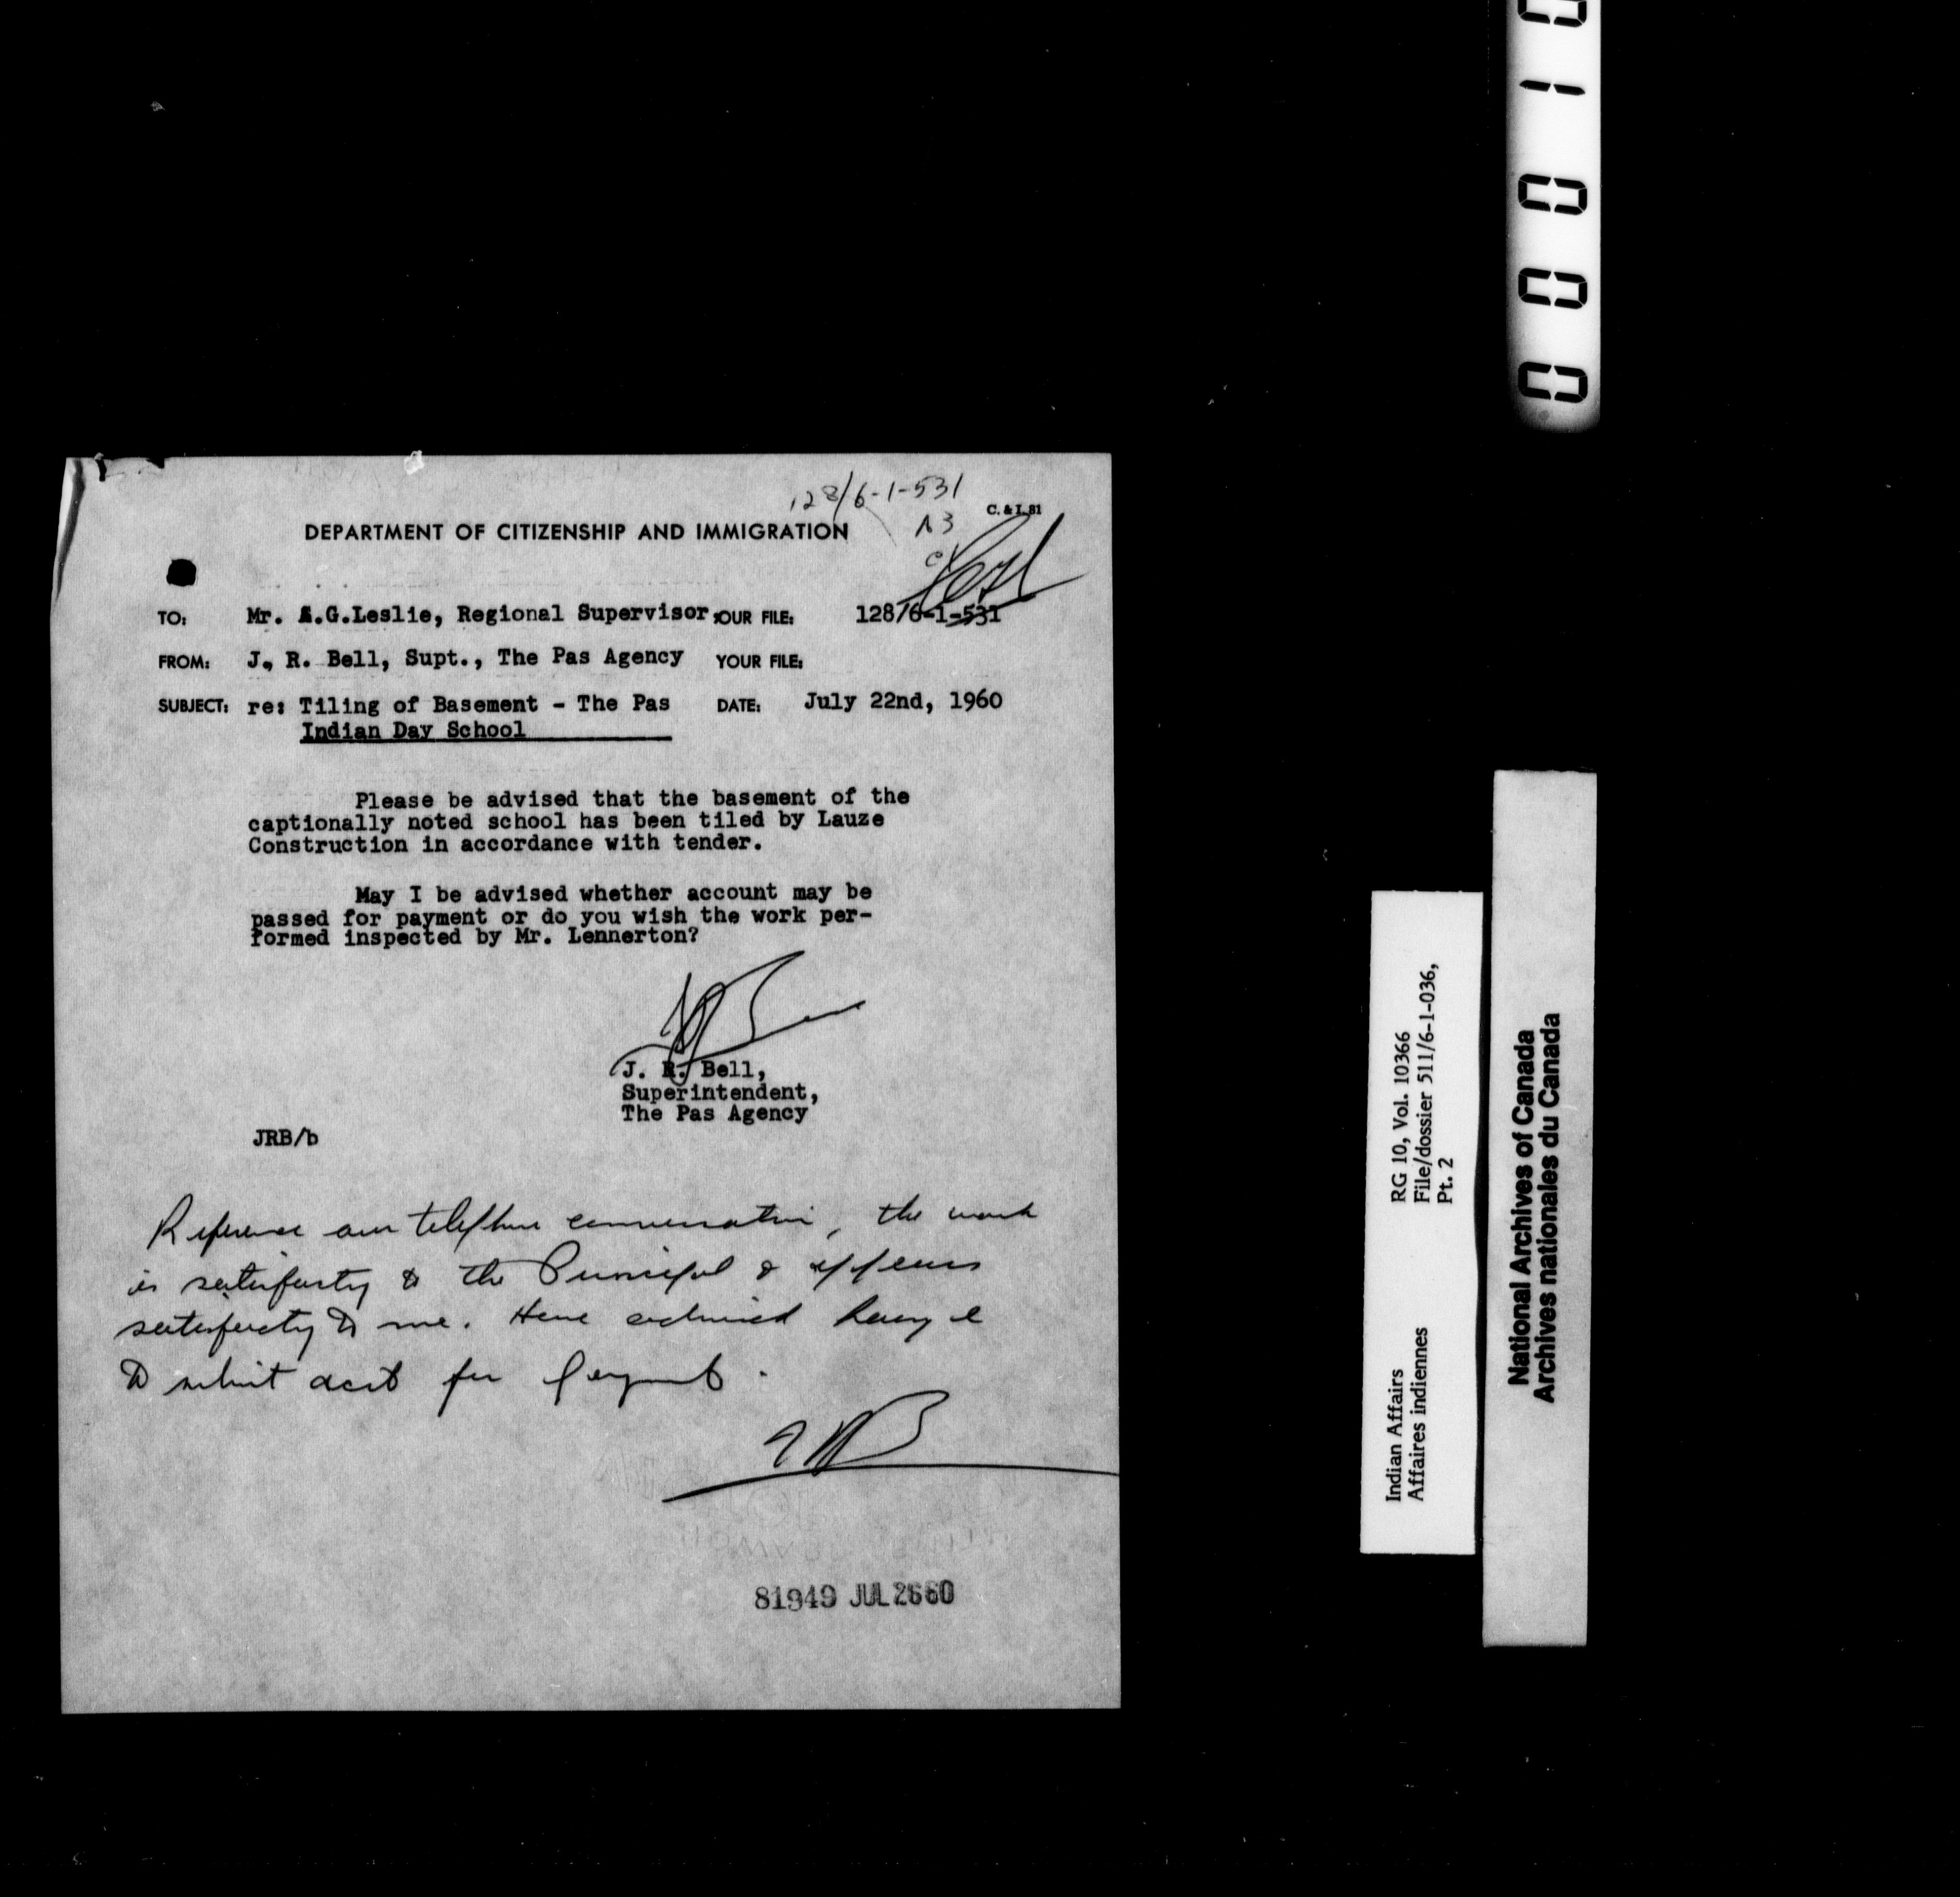 128/6-1-531
C. & I. 81
DEPARTMENT OF CITIZENSHIP AND IMMIGRATION
TO: Mr. A.G.Leslie, Regional Supervisor, OUR FILE: 128/6-1-531
FROM: J. R. Bell, Supt., The Pas Agency YOUR FILE:
SUBJECT: re: Tiling of Basement - The Pas DATE: July 22nd, 1960
Indian Day School
Please be advised that the basement of the
captionally noted school has been tiled by Lauze
Construction in accordance with tender.
May I be advised whether account may be
passed for payment or do you wish the work per-
formed inspected by Mr. Lennerton?
J. R. Bell,
Superintendent,
The Pas Agency
JRB/b
Reference our telephone conversation, the work
is satisfactory to the Principal & appears
satisfactory to me. Have advised
to submit acct for payment.
JRB
81949 JUL 26 60
00010
RG 10, Vol. 10366
File/dossier 511/6-1-036,
Pt. 2
Indian Affairs
Affaires indiennes
National Archives of Canada
Archives nationales du Canada